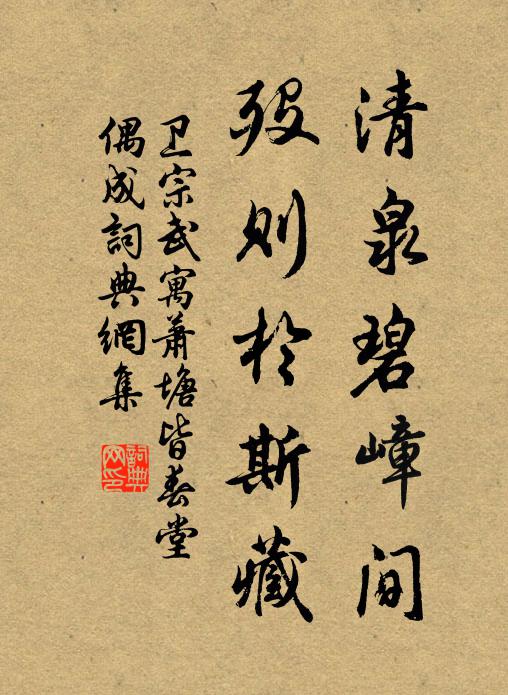 清泉碧嶂间
殁则於斯藏
卫宗武寓萧塘皆春堂
偶成詞典網集
詞典网印